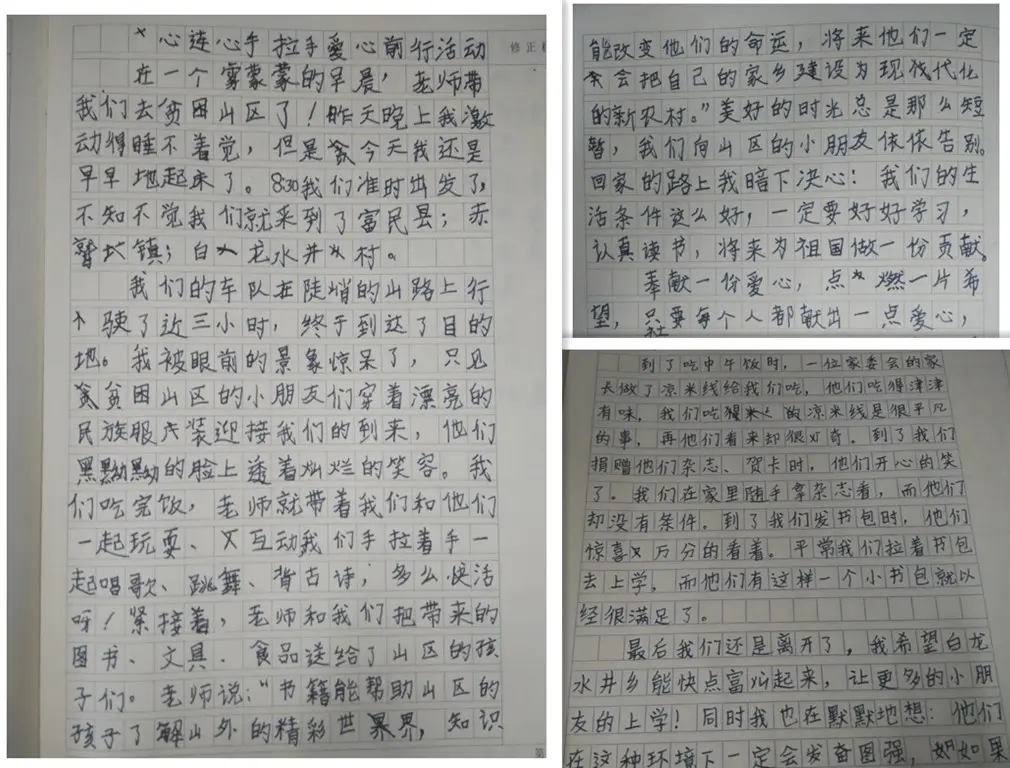 心连心手拉手爱心前行活动
修正
在一个雾蒙蒙的早晨，老师带
我们去贫困山区了！昨天晚上我激
动得睡不着觉，但是今天我还是
早早地起床了。8:30我们准时出发了，
不知不觉我们就来到了富民县；赤
鹫镇；白龙水井村。
我们的车队在陡峭的山路上行
驶了近三小时，终于到达了目的
地。我被眼前的景象惊呆了，只见
贫困山区的小朋友们穿着漂亮的
民族服装迎接我们的到来，他们
黑黝黝的脸上透着灿烂的笑容。我
们吃完饭，老师就带着我们和他们
一起玩耍、互动我们手拉着手一
起唱歌、跳舞、背古诗；多么快活
呀！紧接着，老师和我们把带来的
图书、文具、食品送给了山区的孩
子们。老师说：“书籍能帮助山区的
孩子了解山外的精彩世界，知识
第
能改变他们的命运，将来他们一定
会把自己的家乡建设为现代化
的新农村。”美好的时光总是那么短
暂，我们向山区的小朋友依依告别。
回家的路上我暗下决心：我们的生
活条件这么好，一定要好好学习，
认真读书，将来为祖国做一份贡献。
奉献一份爱心，点燃一片希
望，只要每个人都献出一点爱心，
社
到了吃中午饭时，一位家委会的家
长做了凉米线给我们吃，他们吃得津津
有味，我们吃的凉米线是很平凡
的事，再他们看来却很好奇。到了我们
捐赠他们杂志、贺卡时，他们开心的笑
了。我们在家里随手拿杂志看，而他们
却没有条件。到了我们发书包时，他们
惊喜万分的看着。平常我们拉着书包
去上学，而他们有这样一个小书包就以
经很满足了。
最后我们还是离开了，我希望白龙
水井乡能快点富起来，让更多的小朋
友的上学！同时我也在默默地想：他们
在这种环境下一定会发奋图强，如果